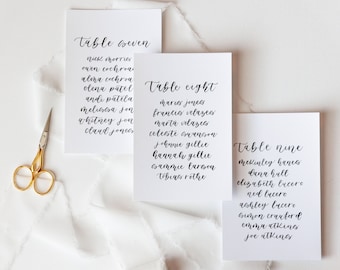 table seven
nick morris
owen cochran
alma cochran
elena patela
andi patela
melissa jones
whitney jones
claud jones
table eight
maries jones
francies velazes
marta velazes
celeste swanson
johnnie gillie
hannah gillie
sammie larson
tobias rothe
table nine
mckinley banes
dana hall
elizabeth lucero
ned lucero
ashley lucero
simon crawford
emma alkines
joe alkines